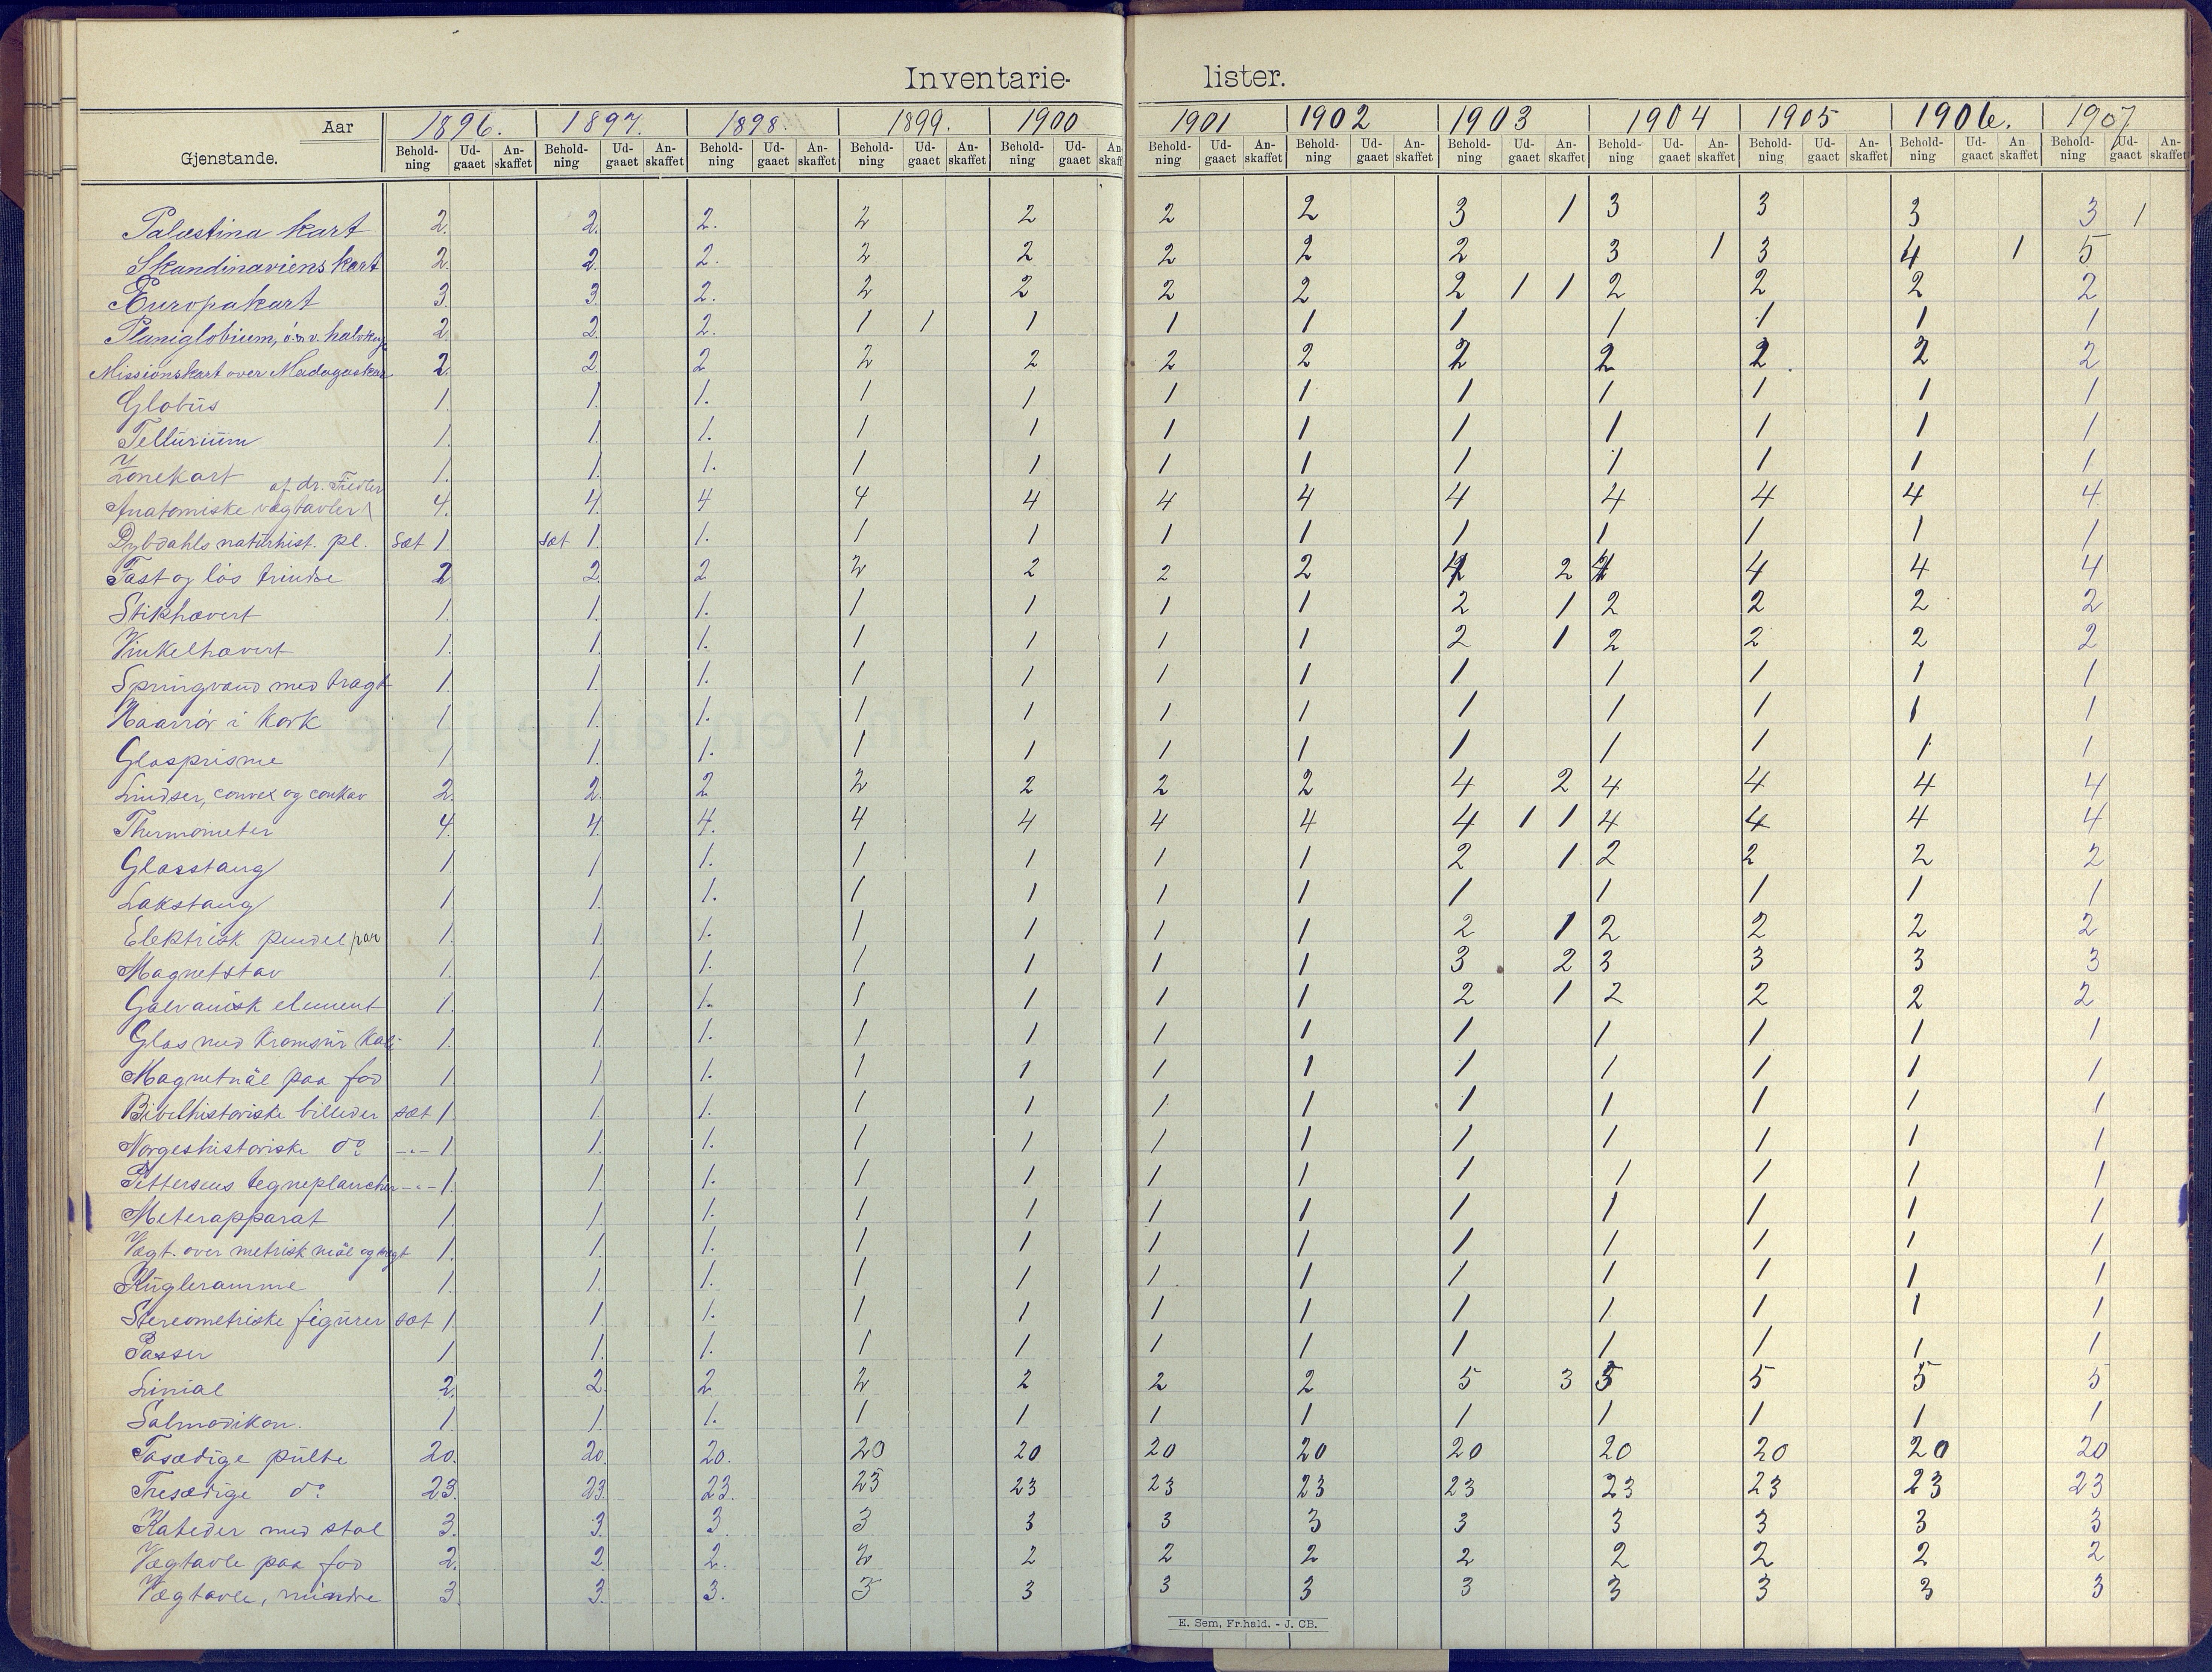 Inventarie- lister.
Aar 1896. 1897. 1898. 1899. 1900 1901 1902 1903 1904 1905 1906. 1907
Gjenstande. Behold-ning Ud-gaaet An-skaffet Behold-ning Ud-gaaet An-skaffet Behold-ning Ud-gaaet An-skaffet Behold-ning Ud-gaaet An-skaffet Behold-ning Ud-gaaet An-skaff Behold-ning Ud-gaaet An-skaffet Behold-ning Ud-gaaet An-skaffet Behold-ning Ud-gaaet An-skaffet Behold-ning Ud-gaaet An-skaffet Behold-ning Ud-gaaet An-skaffet Behold-ning Ud-gaaet An-skaffet Behold-ning Ud-gaaet An-skaffet
Palæstina kart 2. 2. 2. 2 2 2 2 3 1 3 3 3 3 1
Skandinaviens kart 2. 2. 2. 2 2 2 2 2 3 1 3 4 1 5
Europakart 3. 3. 2. 2 2 2 2 2 1 1 2 2 2 2
Planiglobium, ö. & v. halvkug. 2. 2. 2. 1 1 1 1 1 1 1 1 1 1
Missionskart over Madagaskar 2. 2. 2 2 2 2 2 2 2 2 2 2
Globus 1. 1. 1. 1 1 1 1 1 1 1 1 1
Tellurium 1. 1. 1. 1 1 1 1 1 1 1 1 1
Zonekart 1. 1. 1. 1 1 1 1 1 1 1 1 1
Anatomiske vægtavler af dr. Fiedler 4. 4. 4 4 4 4 4 4 4 4 4 4
Dybdahls naturhist. pl. sæt 1. sæt 1. 1. 1 1 1 1 1 1 1 1 1
Fast og lös trindse 2 2 2 2 2 2 2 4 2 4 4 4 4
Stikhævert 1. 1. 1. 1 1 1 1 2 1 2 2 2 2
Vinkelhævert 1. 1. 1. 1 1 1 1 2 1 2 2 2 2
Springvand med tragt 1. 1. 1. 1 1 1 1 1 1 1 1 1
Haarrör i kork 1. 1. 1. 1 1 1 1 1 1 1 1 1
Glasprisme 1. 1. 1. 1 1 1 1 1 1 1 1 1
Lindser, convex og conkav 2. 2. 2 2 2 2 2 4 2 4 4 4 4
Thermometer 4. 4. 4. 4 4 4 4 4 1 1 4 4 4 4
Glasstang 1. 1. 1. 1 1 1 1 2 1 2 2 2 2
Lakstang 1. 1. 1. 1 1 1 1 1 1 1 1 1
Elektrisk pendel par 1. 1. 1. 1 1 1 1 2 1 2 2 2 2
Magnetstav 1. 1. 1. 1 1 1 1 3 2 3 3 3 3
Galvanisk element 1. 1. 1. 1 1 1 1 2 1 2 2 2 2
Glas med kromsur kali 1. 1. 1. 1 1 1 1 1 1 1 1 1
Magnetnål paa fod 1. 1. 1. 1 1 1 1 1 1 1 1 1
Bibelhistoriske billeder sæt 1. 1. 1. 1 1 1 1 1 1 1 1 1
Norgeshistoriske do -"- 1 1. 1. 1 1 1 1 1 1 1 1 1
Pettersens tegneplancher -"- 1. 1. 1. 1 1 1 1 1 1 1 1 1
Meterapparat 1. 1. 1. 1 1 1 1 1 1 1 1 1
Vægt. over metrisk mål og vægt 1. 1. 1. 1 1 1 1 1 1 1 1 1
Kugleramme 1. 1. 1. 1 1 1 1 1 1 1 1 1
Stereometriske figurer sæt 1. 1. 1. 1 1 1 1 1 1 1 1 1
Passer 1. 1. 1. 1 1 1 1 1 1 1 1 1
Linial 2. 2. 2 2 2 2 2 5 3 5 5 5 5
Salmodikon. 1. 1. 1. 1 1 1 1 1 1 1 1 1
Tosædige pulte 20. 20. 20. 20 20 20 20 20 20 20 20 20
Tresædige do 23. 23. 23. 23 23 23 23 23 23 23 23 23
Kateder med stol 3. 3. 3. 3 3 3 3 3 3 3 3 3
Vægtavle paa fod 2. 2. 2. 2 2 2 2 2 2 2 2 2
Vægtavle, mindre 3. 3. 3. 3 3 3 3 3 3 3 3 3
E. Sem, Fr.hald. - J. CB.